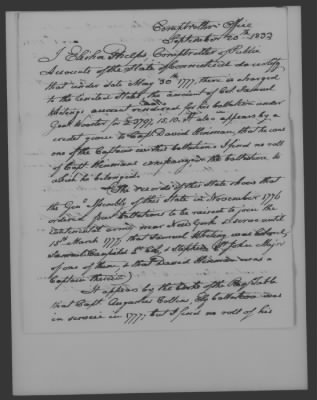 Comptrollers Office
September 20th 1833
I Elisha Phelps Comptroller of Public
Accounts of the State of Connecticut do certify
that under date May 30th 1777, there is charged
to the United States the amount of Col Samuel
account rendered for his Battalion under
Genl Wooster for £ 2791. 15. 10. It also appears by a
credit given to Capt David Hinman, that he was
one of the Captains in this battalion. I find no roll
of Capt Hinmans company, nor the battalion to
which he belonged.
The records of this State shew that
the Genl Assembly of this State in November 1776
ordered four battalions to be raised to join the
continental army near New York & serve until
15th March 1777, that Samuel was Colonel,
Samuel Canfield Lt Col, & Stephen St John Major
of one of them, & that David Hinman was a
Captain therein
It appears by the Books of the Pay Table
that Capt Augustus Collins, battalion was
in service in 1777; but I find no roll of his